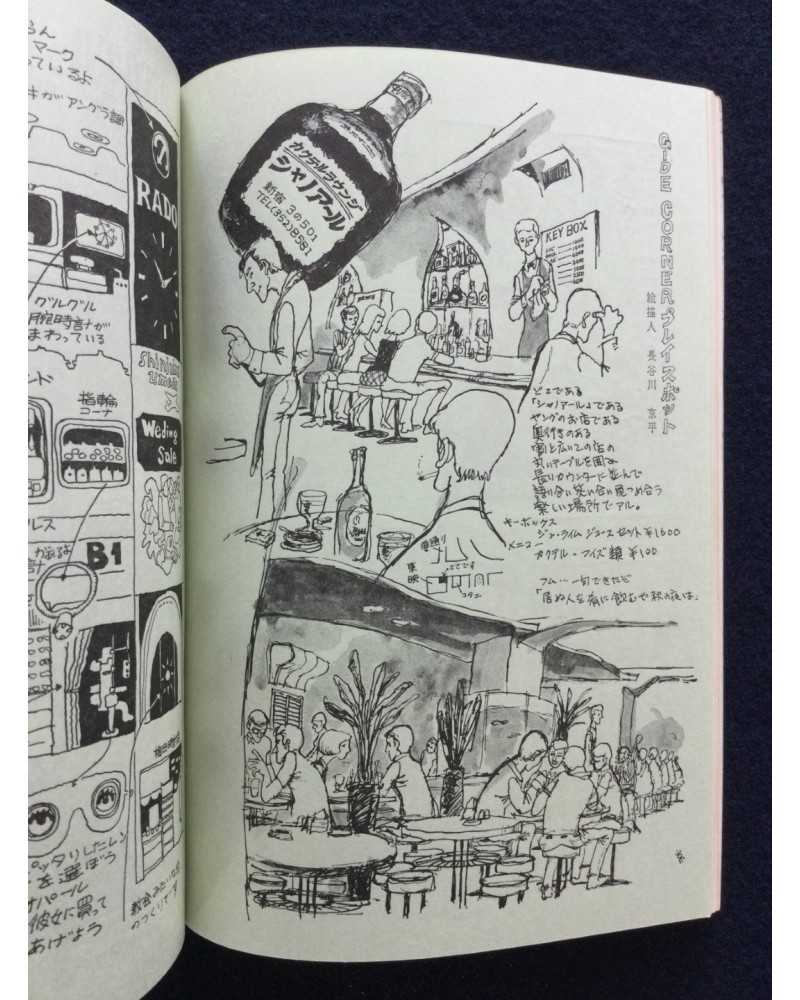 らん
マーク
っているよ
キがアングラ調
RADO
グルグル
腕時計が
まわっている
指輪
コーナ
Weding
Sale
B1
ッタリしたレン
を選ぼう
パール
彼女に買って
あげよう
のつくりです
カクテルラウンジ
シャノアール
新宿 3の501
TEL(352)8581
KEY BOX
GIDE CORNER プレイスポット
絵描人 長谷川 京平
どこである
「シャノアール」である
ヤングのお店である
奥行きのある
店の
丸いテーブルを囲み
長いカウンターに並んで
語り合い笑い合い見つめ合う
楽しい場所でアル。
キーボックス
ジン・ライム ジュース セット ¥1600
メニュー
カクテル・フィズ類 ¥100
ここです
東映
コタニ
フム…一句できたぞ
「居ぬ人を肴に飲むや秋の夜は」